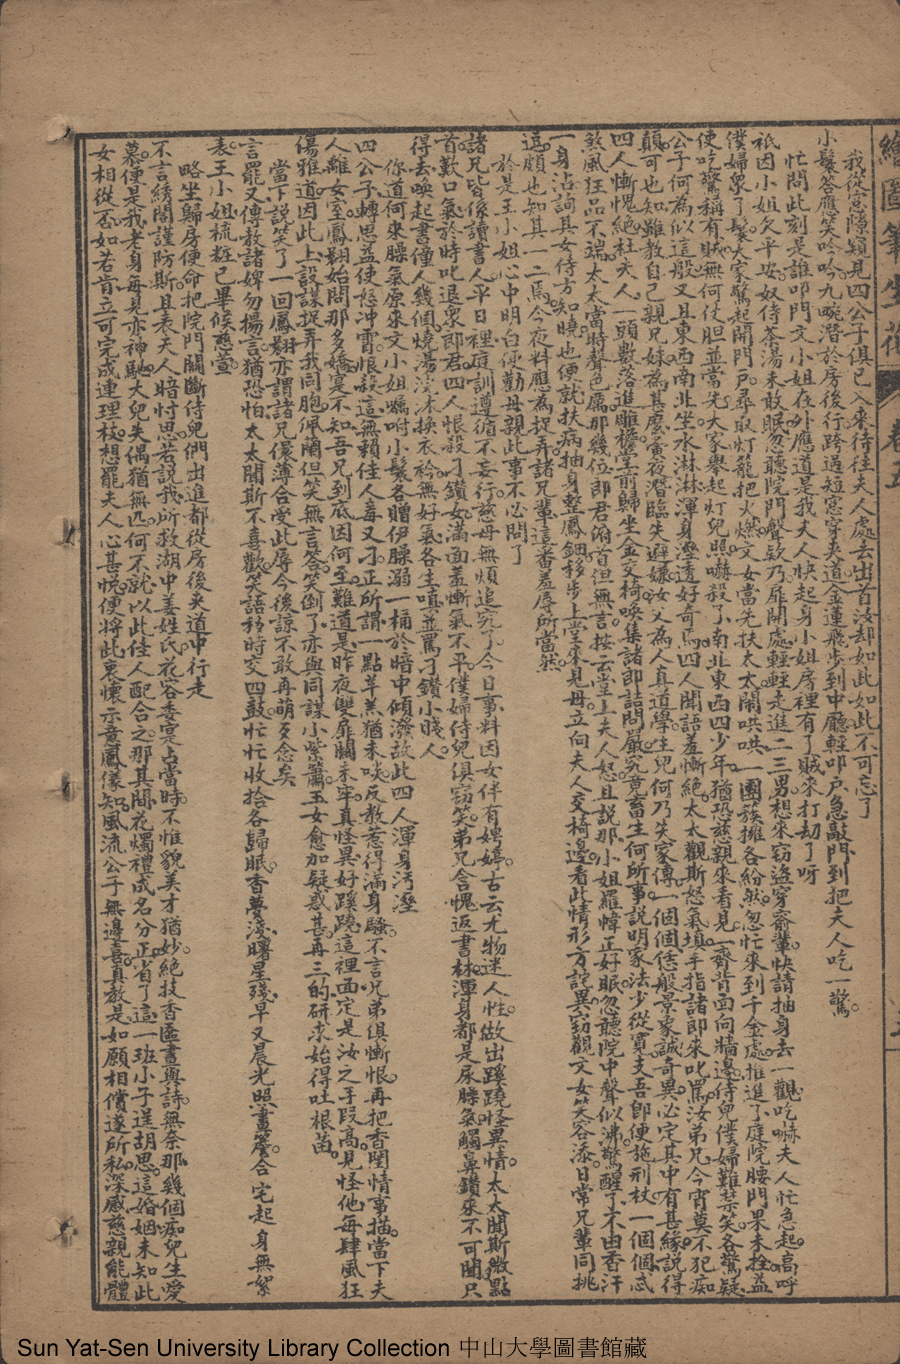 繪圖筆生花 卷五
我從窓隙窺見四公子俱已入來待往夫人處去出首汝却如此如此不可忘了
小鬟答應笑吟吟九畹潛於房後行跨過短窓穿夾道金蓮飛步到中廳輕叩戶急敲門到把夫人吃一驚
忙問此刻是誰叩門文小姐在外應道是我夫人快起身小姐房裡有了賊來打劫了呀
祇因小姐欠平安奴侍茶湯未敢眠忽聽院門聲欵乃扉開處輕輕走進二三男想來窃盜穿窬輩快請抽身去一觀吃嚇夫人忙急起高呼
僕婦衆了鬟大家驚起開門戶尋取灯籠把火燃文女當先扶太太鬧哄哄一團簇擁各紛然忽忙來到千金處推進了庭院腰門果未拴益
使吃驚稱有賊無何仗胆並當先大家舉起灯兒照嚇殺了南北東西四少年猶恐慈親來看見一齊背面向牆邊侍兒僕婦難禁笑各驚疑
公子何為似這般又且東西南北坐水淋淋渾身溼透好奇焉四人聞語羞慚絕太太觀斯怒氣填手指諸郎來叱罵汝弟兄今宵莫不犯痴
顛可也知雖教自己親兄妹為甚麼黃夜潛臨失避嫌汝父為人真道學生兒何乃失家傳一個個恁般景象誠奇異必定其中有甚緣說得
四人慚愧絕杜夫人一頭數落進雕檐堂前歸坐金交椅喚集諸郎詰問嚴究竟畜生何所事說明家法少從寬支吾卽便施刑杖一個個忒
煞風狂品不端太太當時聲色厲那幾位郎君俯首但無言按云堂上夫人怒且說那小姐羅幃正好眠忽聽院中聲似沸驚醒了不由香汗
一身沾詢其女侍方知曉也便就扶病抽身整鳳鈿移步上堂來見母立向夫人交椅邊看此情形方詫異窃觀文女笑容添日常兄輩同挑
逗頗也知其一二焉今夜料應為捉弄諸兄輩這番羞辱所當然
於是王小姐心中明白便勸母親此事不必問了
諸兄皆係讀書人平日裡庭訓遵循不妄行慈母無煩追究了今日事料因女伴有娉婷古云尤物迷人性做出蹊蹺怪異情太太聞斯微點
首歎口氣於時叱退衆郎君四人恨殺刁鑽女滿面羞慚氣不平僕婦侍兒俱窃笑弟兄含愧返書林渾身都是尿臊氣觸鼻鑽來不可聞只
得去喚起書僮人幾個燒湯浣沐換衣衿無好氣各生嗔並罵刁鑽小賤人
你道何來臊氣原來文小姐囑咐小鬟各贈伊臊溺一桶於暗中傾潑故此四人渾身污溼
四公子轉思益使餘冲霄恨殺這無賴佳人毒又刁正所謂一點羊羔猶未啖反教惹得滿身騷不言兄弟俱慚恨再把香閨情事描當下夫
人離女室鳳翾始問那多嬌寔不知吾兄到底因何至難道是昨夜雙扉關未牢真怪異好蹊蹺這裡面定是汝之手段高見怪他每肆風狂
傷雅道因此上設謀捉弄我同胞佩蘭但笑無言答笑倒了亦與同謀小紫簫玉女愈加疑惑甚再三的研求始得吐根苗
當下說笑了一回鳳翾亦謂諸兄儇薄合受此辱今後諒不敢再萌歹念矣
言罷又傳教諸婢勿揚言猶恐怕太太聞斯不喜歡笑語移時交四鼓忙忙收拾各歸眠香夢淺曙星殘早又晨光照畫簷合宅起身無絮
表王小姐梳粧已畢候慈萱
略坐歸房便命把院門關斷侍兒們出進都從房後夾道中行走
不言綉閣謹防斯且表夫人暗忖思若說我所救湖中姜姓氏花容委寔占當時不惟貌美才猶妙絕技香匲畫與詩無奈那幾個痴兒生愛
慕便是我老身每見亦神馳大兒失偶猶無匹何不就以此佳人配合之那其間花燭禮成名分正省了這一班小子逞胡思這婚姻未知此
女相從否如若肯立可完成連理枝想罷夫人心甚悅便將此衷懷示意鳳儀知風流公子無邊喜真教是如願相償遂所私深感慈親能體
Sun Yat-Sen University Library Collection 中山大學圖書館藏